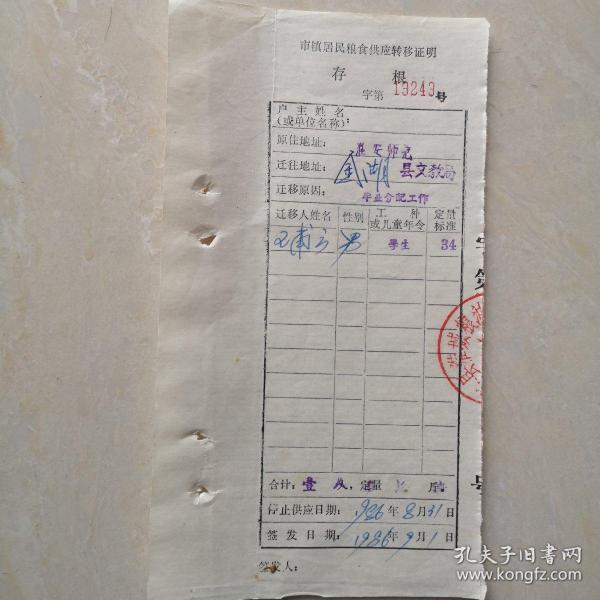 市镇居民粮食供应转移证明
存根
字第 13243号
户主姓名
(或单位名称):
原住地址: 淮安师范
迁往地址: 金湖县文教局
迁移原因: 毕业分配工作
迁移人姓名 性别 工种或儿童年令 定量标准
男 学生 34
合计: 壹 人, 定量 斤
停止供应日期: 1986年8月31日
签发日期: 1986年9月1日
签发人:
孔夫子旧书网
www.kongfz.com